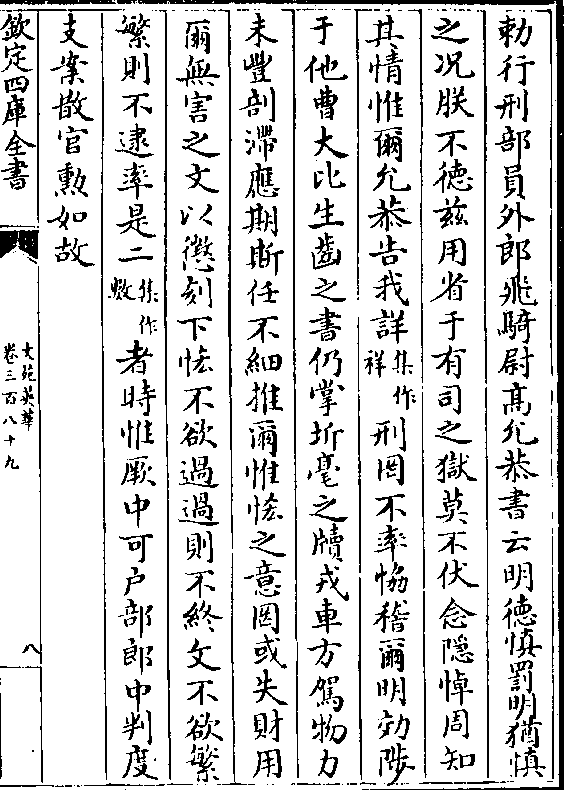 勅行刑部員外郎飛騎尉髙允恭書云明徳慎罰明猶慎
之况朕不徳兹用省于有司之獄莫不伏念隠悼周知
其情惟爾允恭告我詳集作祥刑罔不率恊稽爾明効陟
于他曹大比生齒之書仍掌析毫之牘戎車方駕物力
未豐剖滯應期斯任不細推爾惟恡之意罔或失財用
爾無害之文以懲刻下恡不欲過過則不終文不欲繁
繁則不逮率是二集作數者時惟厥中可户部郎中判度
支案散官勲如故
欽定四庫全書
文苑英華
卷三百八十九
八